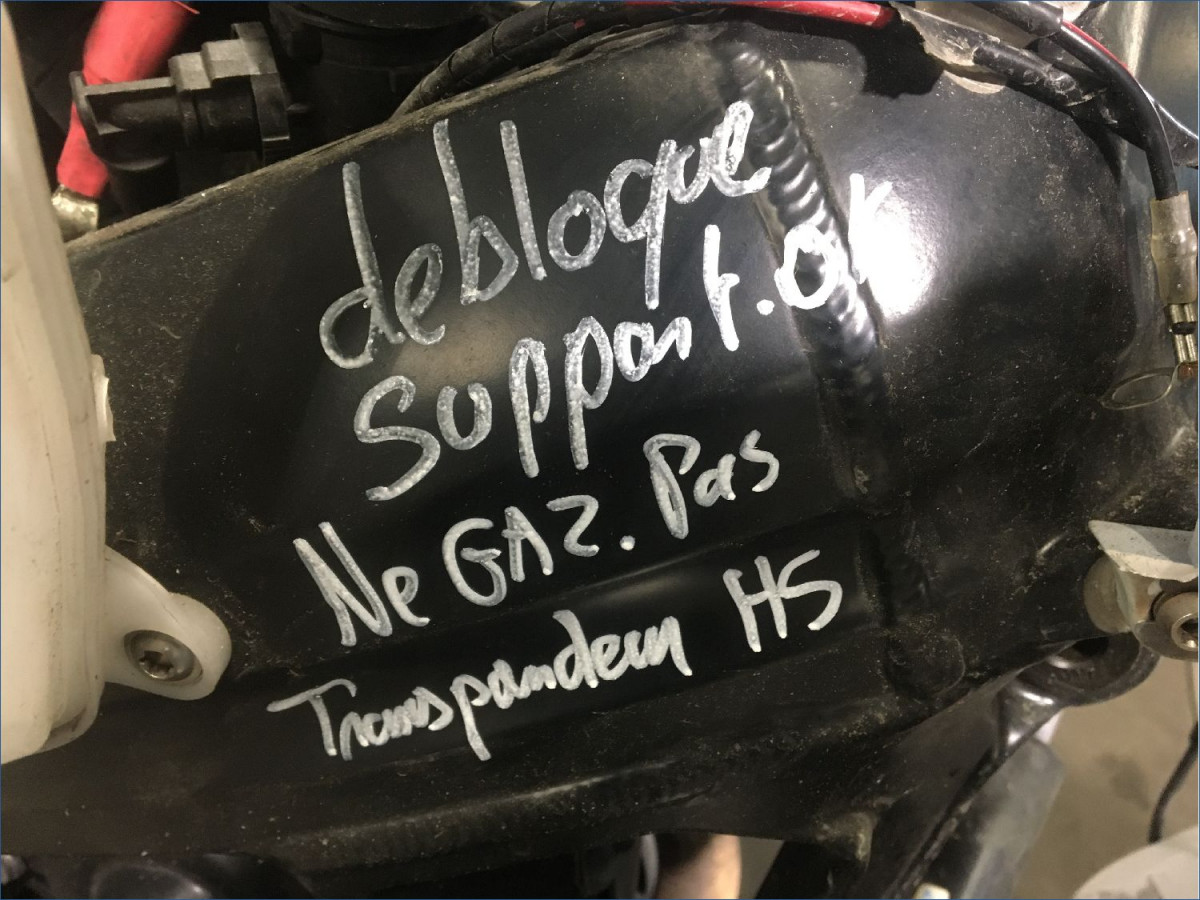 debloque
Support.OK
Ne GAZ. Pas
Transpondeur HS